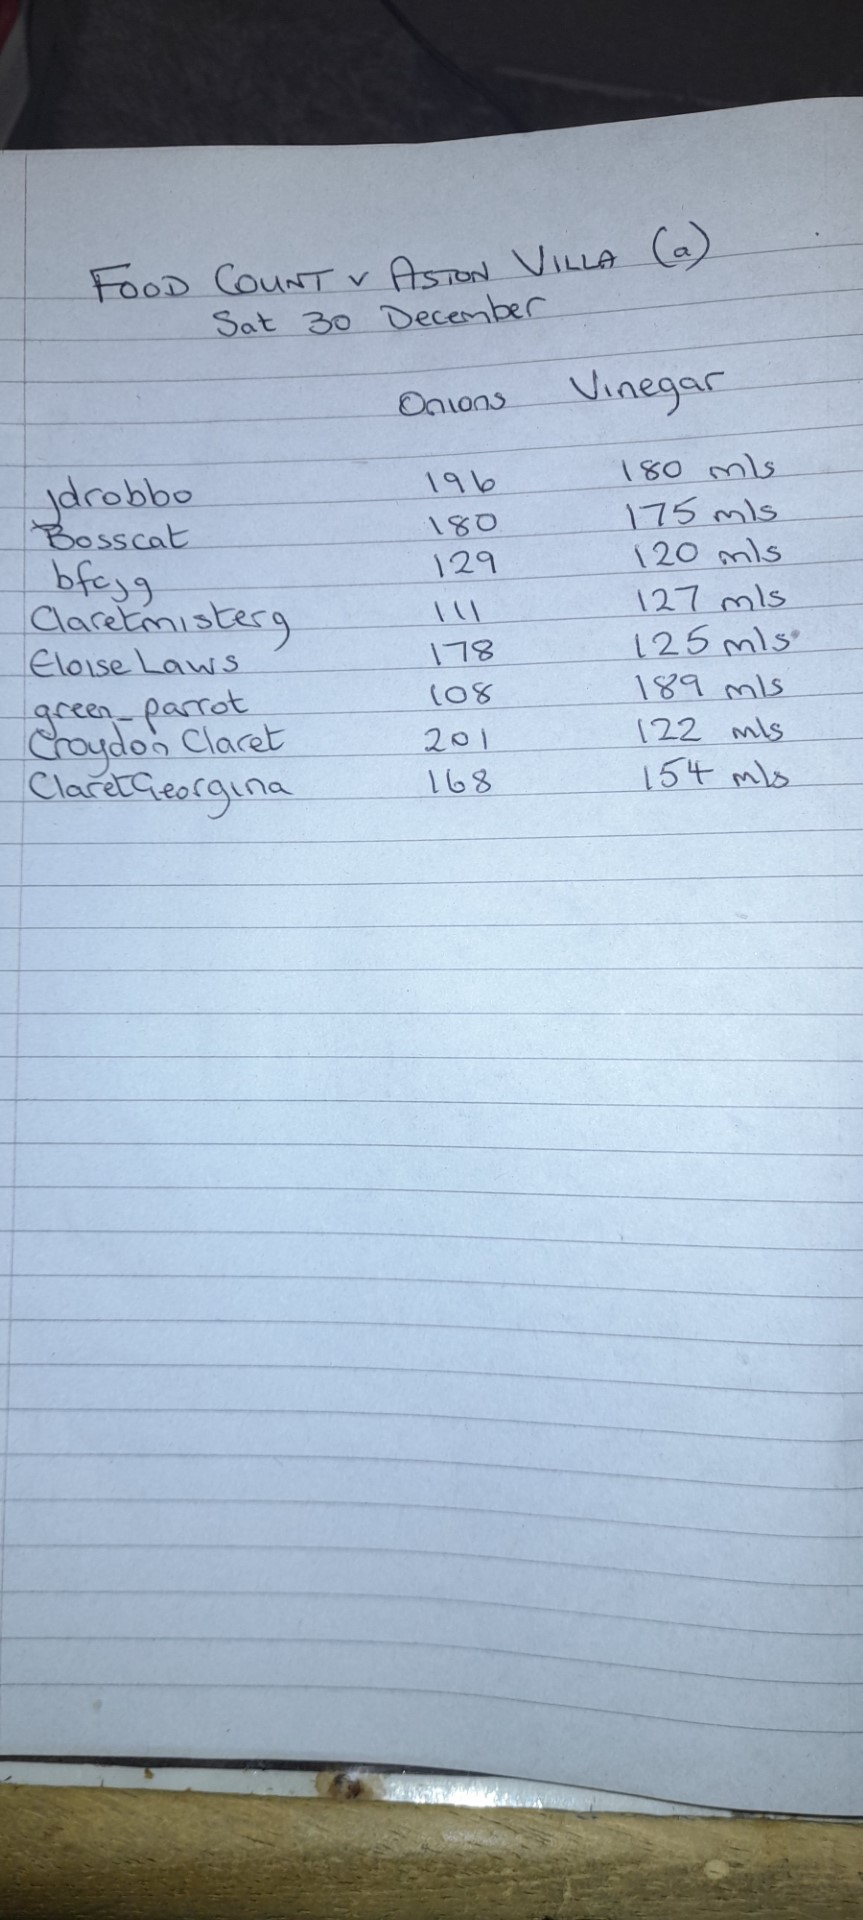 FOOD COUNT v ASTON VILLA (a)
Sat 30 December
Onions Vinegar
jdrobbo 196 180 mls
Bosscat 180 175 mls
bfcjg 129 120 mls
Claretmisterg 111 127 mls
Eloise Laws 178 125 mls
green_parrot 108 189 mls
Croydon Claret 201 122 mls
ClaretGeorgina 168 154 mls